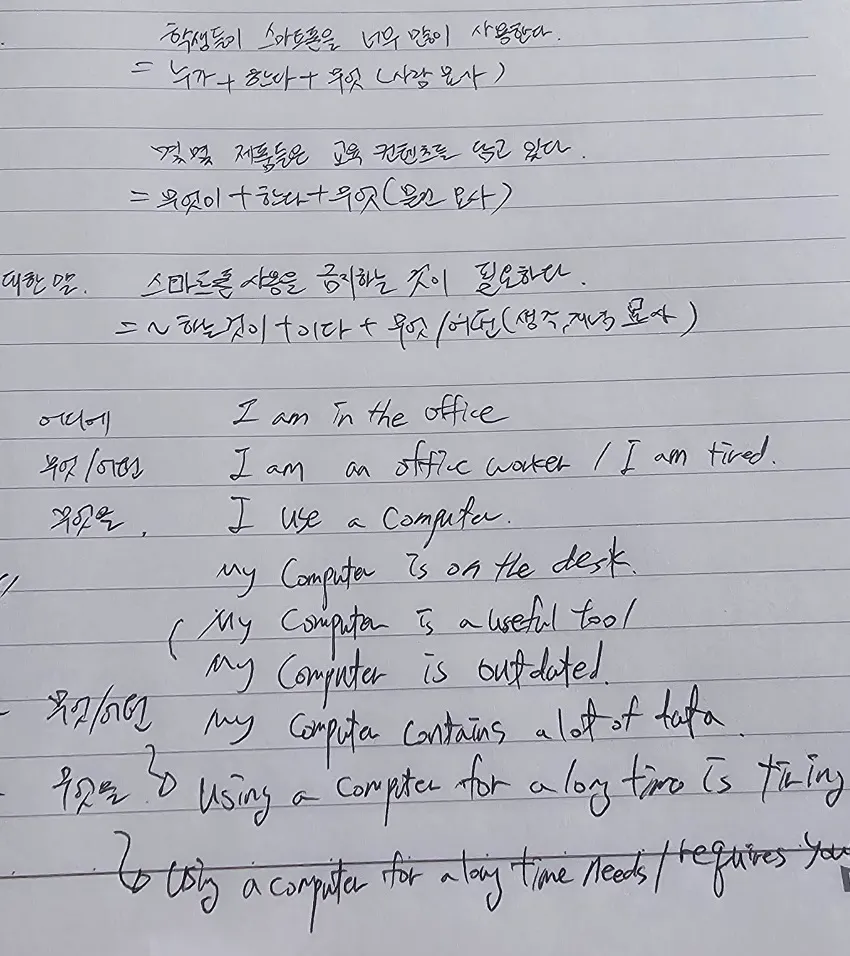 학생들이 스마트폰을 너무 많이 사용한다.
= 누가 + 한다 + 무엇 (사람 묘사)
몇몇 제품들은 교육 컨텐츠를 담고 있다.
= 무엇이 + 한다 + 무엇 (물건 묘사)
대한 말. 스마트폰 사용을 금지하는 것이 필요하다.
= ~하는 것이 + 이다 + 무엇/어떤 (생각, 지식 묘사)
어디에 I am in the office
무엇/어떤 I am an office worker / I am tired.
무엇을. I use a computer.
my computer is on the desk.
( My computer is a useful tool
My computer is outdated.
무엇/어떤 my computer contains a lot of data.
무엇을 using a computer for a long time is tiring
using a computer for a long time needs/requires you